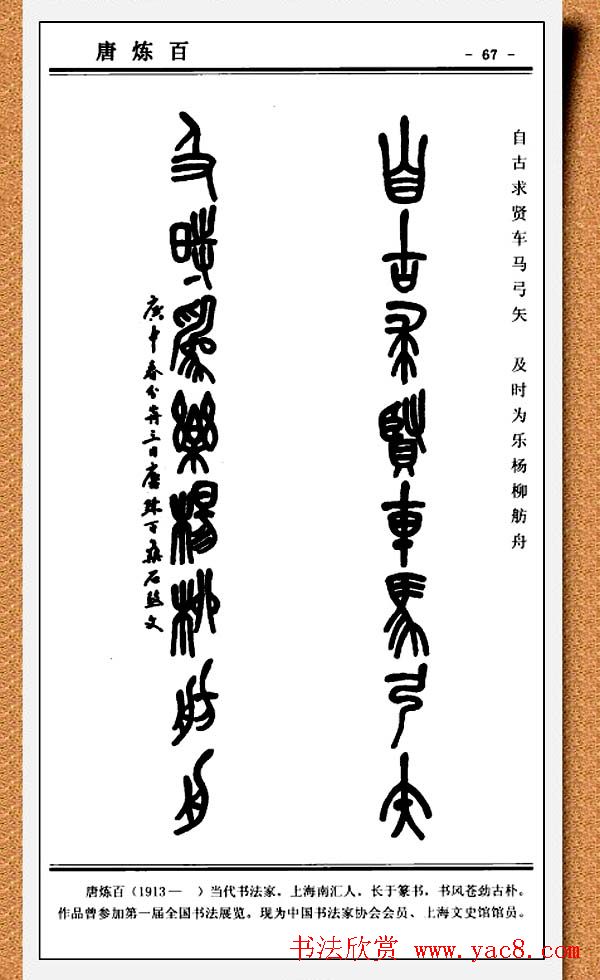 唐炼百
- 67 -
自古求贤车马弓矢 及时为乐杨柳舫舟
自古求賢車馬弓矢
及時爲樂楊柳舫舟
庚申春分前三日唐鍊百集石鼓文
唐炼百（1913— ）当代书法家。上海南汇人。长于篆书，书风苍劲古朴。
作品曾参加第一届全国书法展览。现为中国书法家协会会员、上海文史馆馆员。
书法欣赏 www.yac8.com